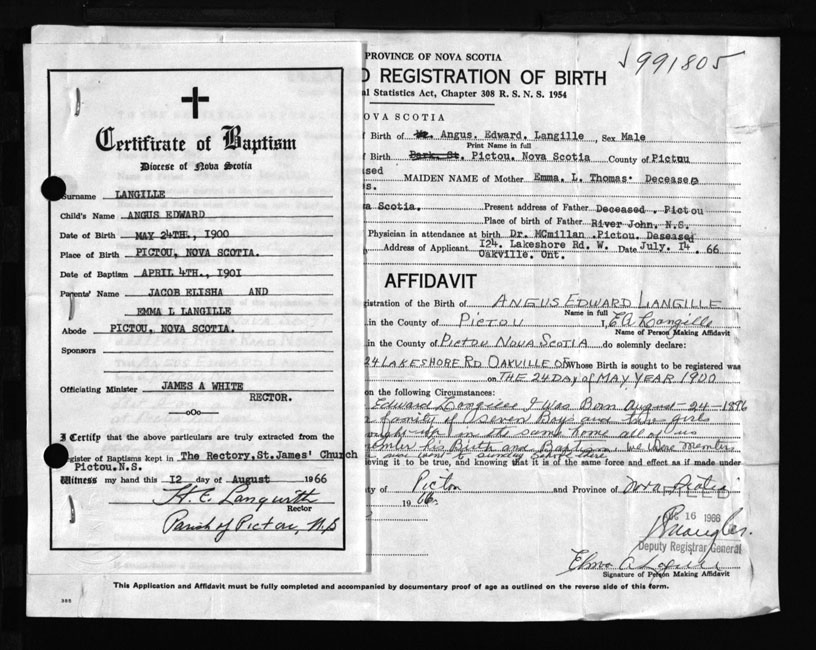 Certificate of Baptism
Diocese of Nova Scotia
Surname LANGILLE
Child's Name ANGUS EDWARD
Date of Birth MAY 24TH., 1900
Place of Birth PICTOU, NOVA SCOTIA.
Date of Baptism APRIL 4TH., 1901
Parents' Name JACOB ELISHA AND
EMMA L LANGILLE
Abode PICTOU, NOVA SCOTIA.
Sponsors
Officiating Minister JAMES A WHITE
RECTOR.
oOo
I Certify that the above particulars are truly extracted from the
register of Baptisms kept in The Rectory.St.James' Church
Pictou.N.S.
Witness my hand this 12 day of August 1966
Rector
Parish of Pictou, N.S
PROVINCE OF NOVA SCOTIA
991805
REGISTRATION OF BIRTH
Statistics Act, Chapter 308 R. S. N. S. 1954
NOVA SCOTIA
of Birth of Angus. Edward. Langille, Sex Male
Print Name in full
Birth Park. St. Pictou. Nova Scotia County of Pictou
MAIDEN NAME of Mother Emma. L. Thomas. Deceased
Scotia. Present address of Father Deceased . Pictou
Place of birth of Father River John. N.S.
Physician in attendance at birth Dr. MCmillan .Pictou. Deseased
Address of Applicant I24. Lakeshore Rd. W. Date July. I4. 66
Oakville. Ont.
AFFIDAVIT
registration of the Birth of ANGUS EDWARD LANGILLE
Name in full
in the County of PICTOU I,
Name of Person Making Affidavit
in the County of PICTOU NOVA SCOTIA do solemnly declare:
24 LAKESHORE RD OAKVILLE Whose Birth is sought to be registered was
on THE 24 DAY of MAY YEAR 1900
on the following Circumstances:
Edward Langille I Was Born August 24-1896
family of Seven Boys and girls
in the same home all of us
his Birth and Baptism we
went to sunday school here
believing it to be true, and knowing that it is of the same force and effect as if made under
of Pictou and Province of Nova Scotia
1966.
16 1966
Deputy Registrar General
Signature of Person Making Affidavit
This Application and Affidavit must be fully completed and accompanied by documentary proof of age as outlined on the reverse side of this form.